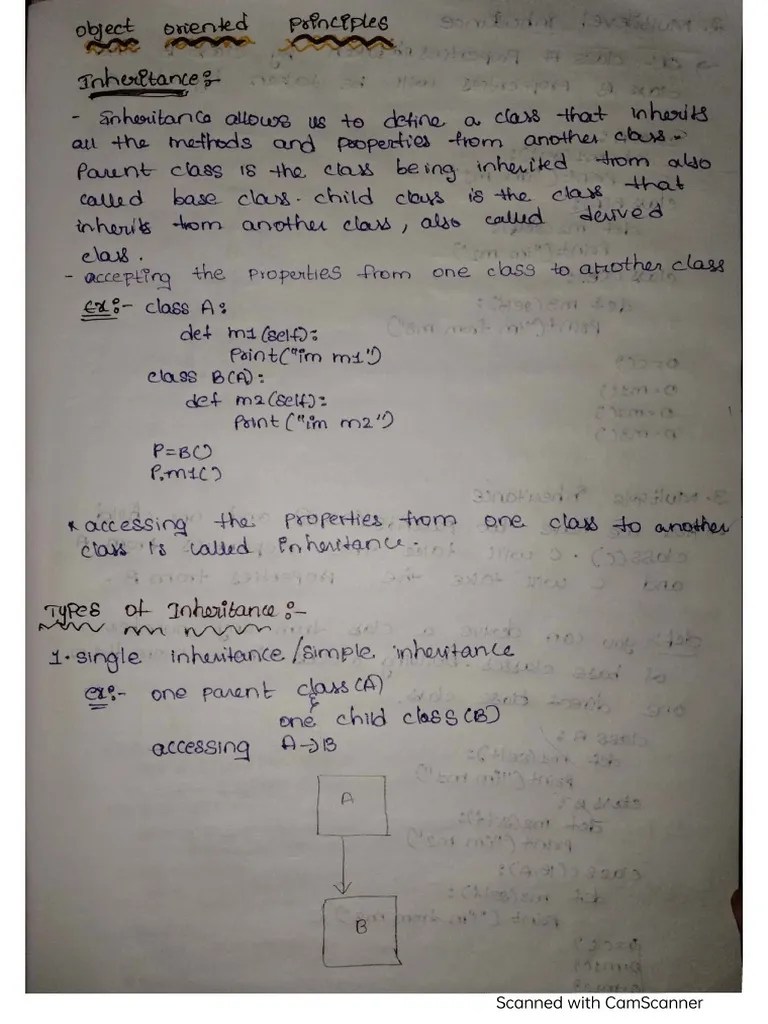 object oriented principles
Inheritance:-
- Inheritance allows us to define a class that inherits
all the methods and properties from another class.
Parent class is the class being inherited from also
called base class. child class is the class that
inherits from another class, also called derived
class.
- accepting the properties from one class to another class
ex:- class A:
def m1(self):
Print("im m1")
class B(A):
def m2(self):
Print ("im m2")
P=B()
P.m1()
* accessing the properties from one class to another
class is called, Inheritance.
Types of Inheritance:-
1. single inheritance/simple inheritance
ex:- one parent class(A)
&
one child class(B)
accessing A→B
A
B
Scanned with CamScanner